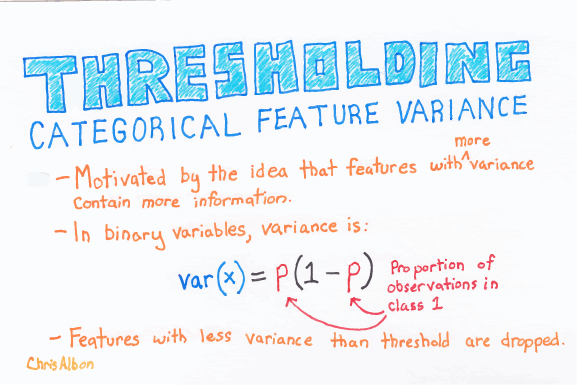 THRESHOLDING
CATEGORICAL FEATURE VARIANCE
- Motivated by the idea that features with ^more variance
contain more information.
- In binary variables, variance is:
var(x) = P(1-P)
Proportion of
observations in
class 1
- Features with less variance than threshold are dropped.
Chris Albon